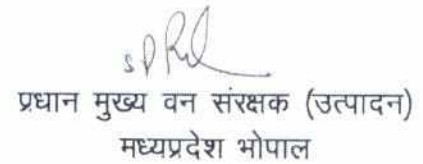 प्रधान मुख्य वन संरक्षक (उत्पादन)
मध्यप्रदेश भोपाल